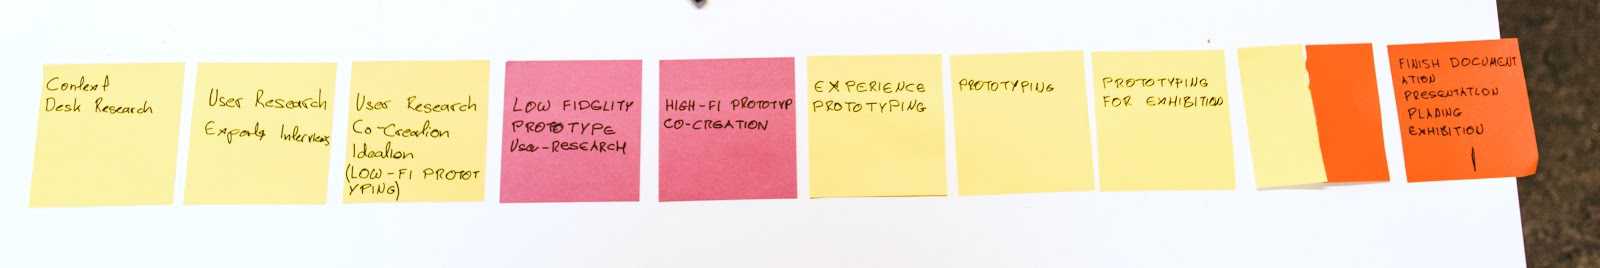 Context
Desk Research
User Research
Experts Interviews
User Research
Co-Creation
Ideation
(LOW-FI PROTOT
YPING)
LOW FIDELITY
PROTOTYPE
User-RESEARCH
HIGH-FI PROTOTYP
CO-CREATION
EXPERIENCE
PROTOTYPING
PROTOTYPING
PROTOTYPING
FOR EXHIBITION
FINISH DOCUMENT
ATION
PRESENTATION
PLANING
EXHIBITION